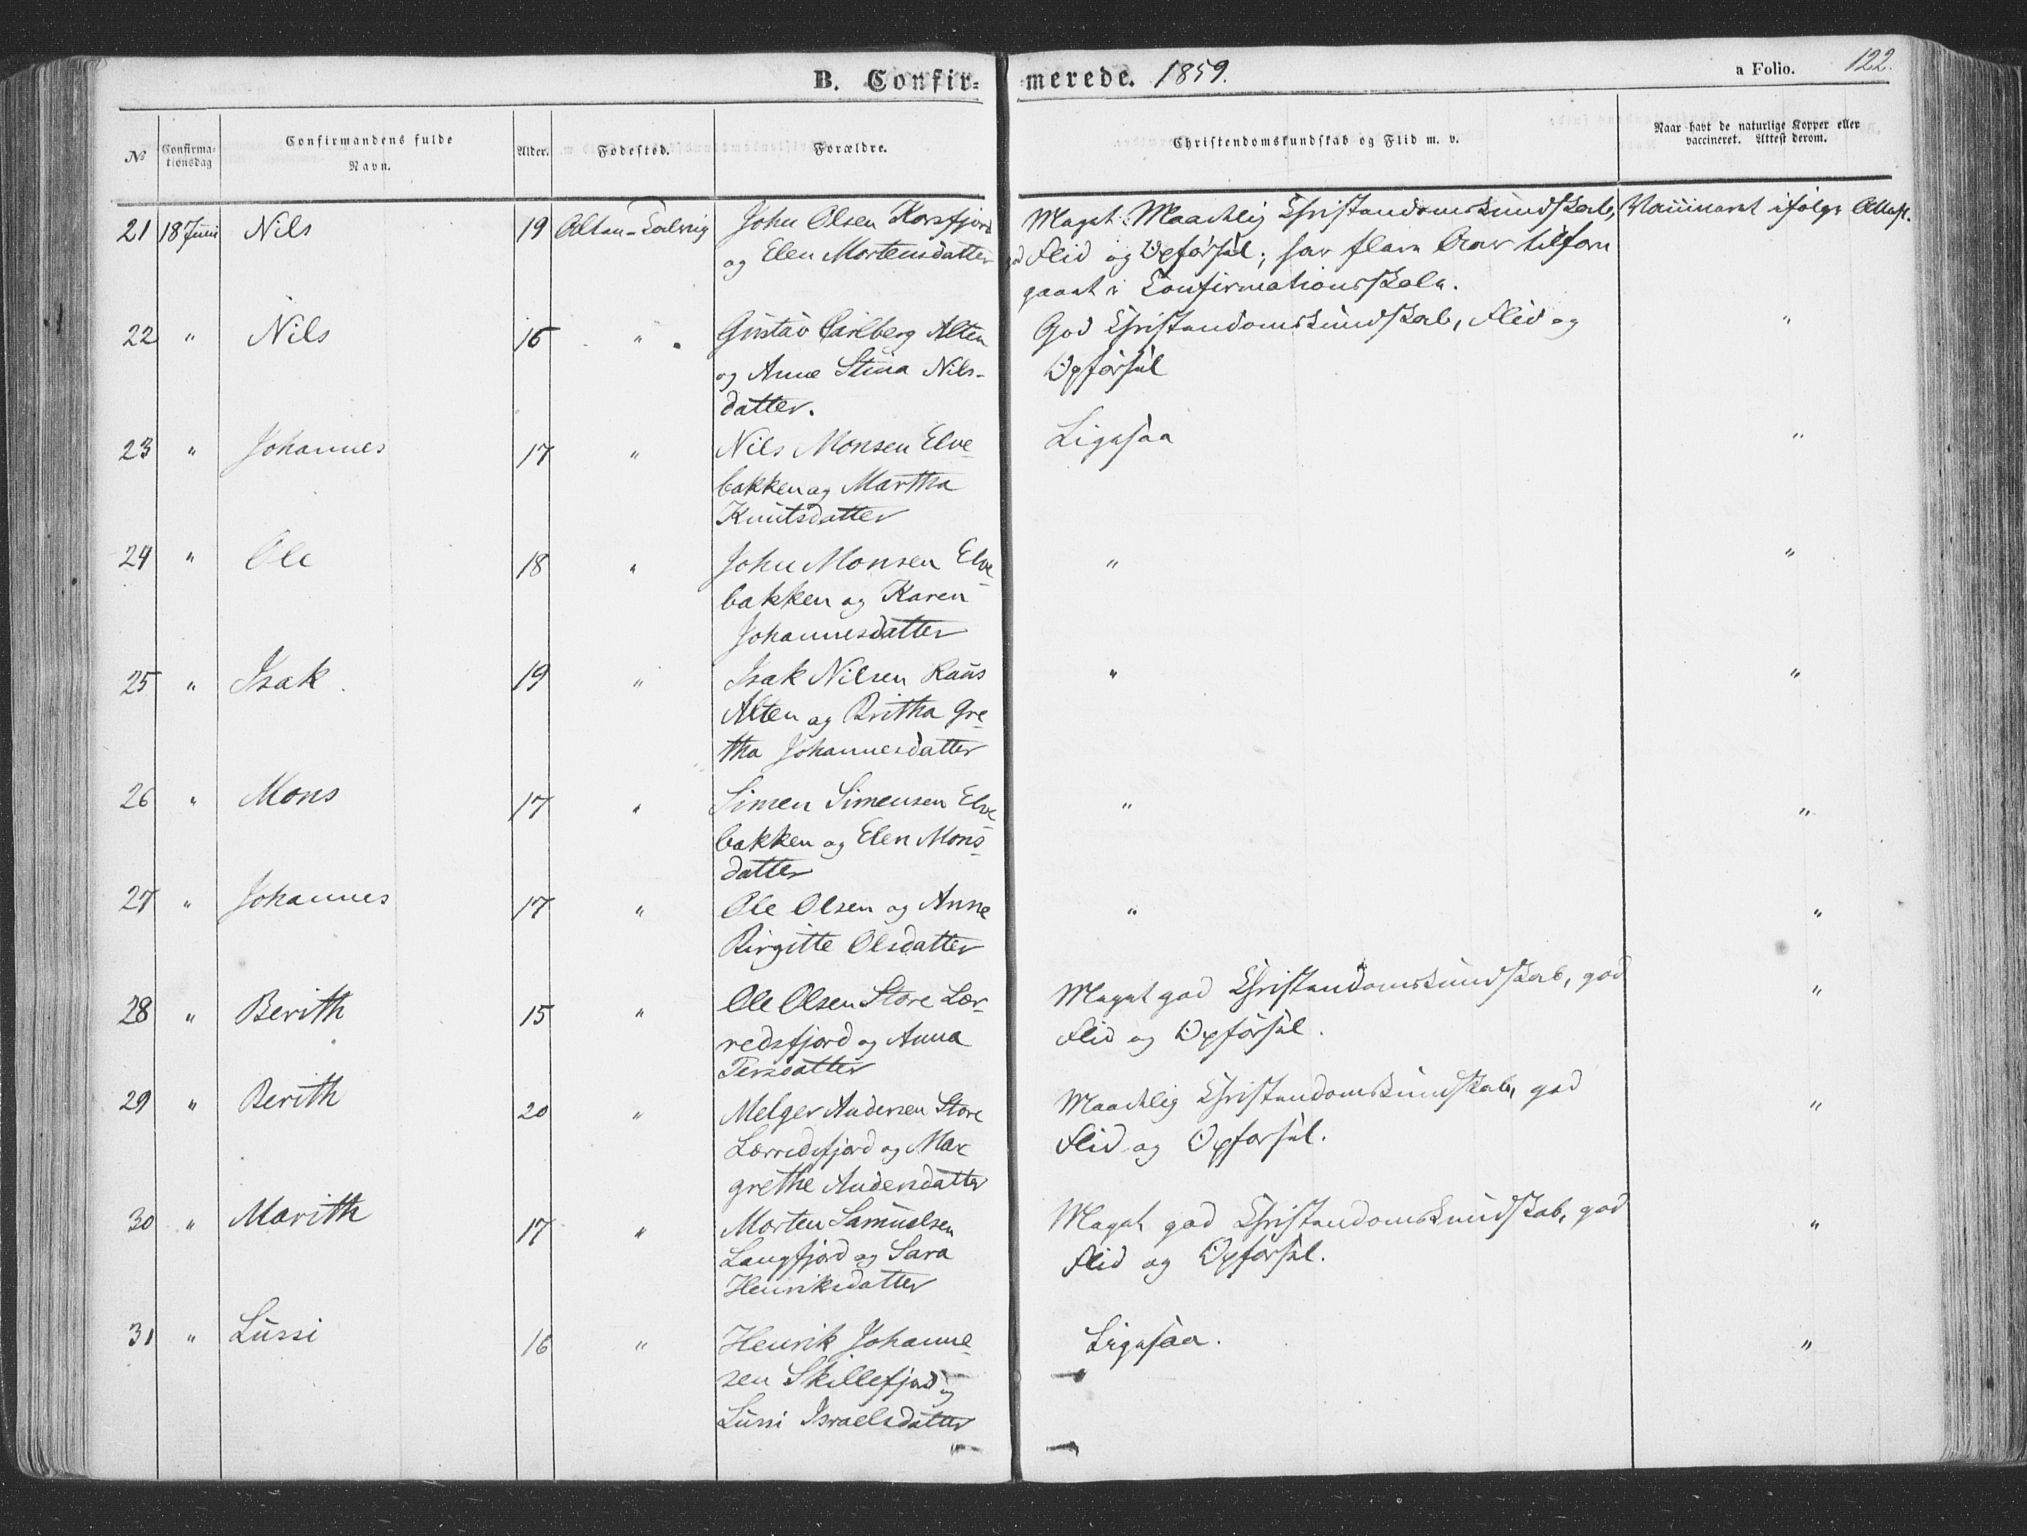 B. Confirmerede. 1859. a Folio. 122.
No Confirmationsdag Confirmandens fulde Navn. Alder. Fødested. Forældre. Christendomskundskab og Flid m. v. Naar havt de naturlige Kopper eller vaccineret. Attest derom.
21 18 Juni Nils 19 Alten-Talvig John Olsen Korsfjord Meget Maadelig Christendomskundskab, Vaccineret ifølge Attest.
og Elen Mortensdatter god Flid og Opførsel; har flere Aar tilforn
gaaet i Confirmationsskole.
22 " Nils 16 " Gustav Carlberg Alten God Christendomskundskab, Flid og "
og Anne Stina Nils- Opførsel
datter.
23 " Johannes 17 " Nils Monsen Elve- Ligesaa "
bakken og Martha
Knutsdatter
24 " Ole 18 " John Monsen Elve- " "
bakken og Karen
Johannesdatter
25 " Isak 19 " Isak Nilsen " "
Alten og Britha Gre-
tha Johannesdatter
26 " Mons 17 " Simen Simensen Elve- " "
bakken og Elen Mons-
datter
27 " Johannes 17 " Ole Olsen og Anne " "
Birgitte Olsdatter
28 " Berith 15 " Ole Olsen Store Lær- Meget god Christendomskundskab, god "
redsfjord og Anna Flid og Opførsel.
Persdatter
29 " Berith 20 " Melger Andersen Store Maadelig Christendomskundskab, god "
Lærredsfjord og Mar- Flid og Opførsel.
grethe Andersdatter
30 " Marith 17 " Morten Samuelsen Meget god Christendomskundskab, god "
Langfjord og Sara Flid og Opførsel.
Henriksdatter
31 " Lussi 16 " Henrik Johanne- Ligesaa. "
sen Skillefjord og
Lussi Israelsdatter